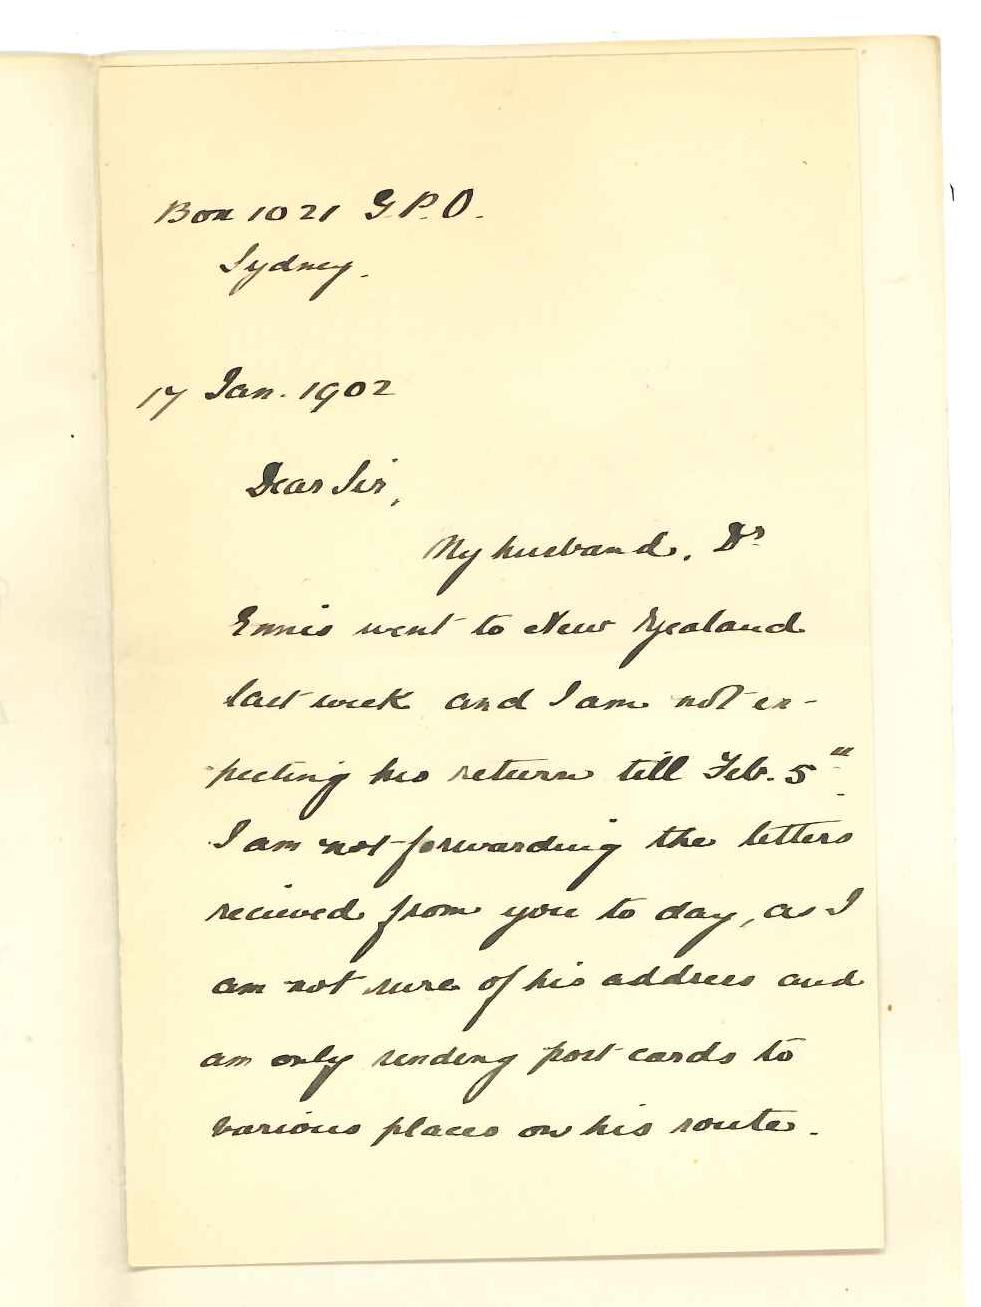 Box 1021 G.P.O.
Sydney.
17 Jan. 1902
Dear Sir,
My husband, Dr
Ennis went to New Zealand
last week and I am not ex-
pecting his return till Feb. 5th.
I am not forwarding the letters
recieved from you to day, as I
am not sure of his address and
am only sending post cards to
various places on his route.